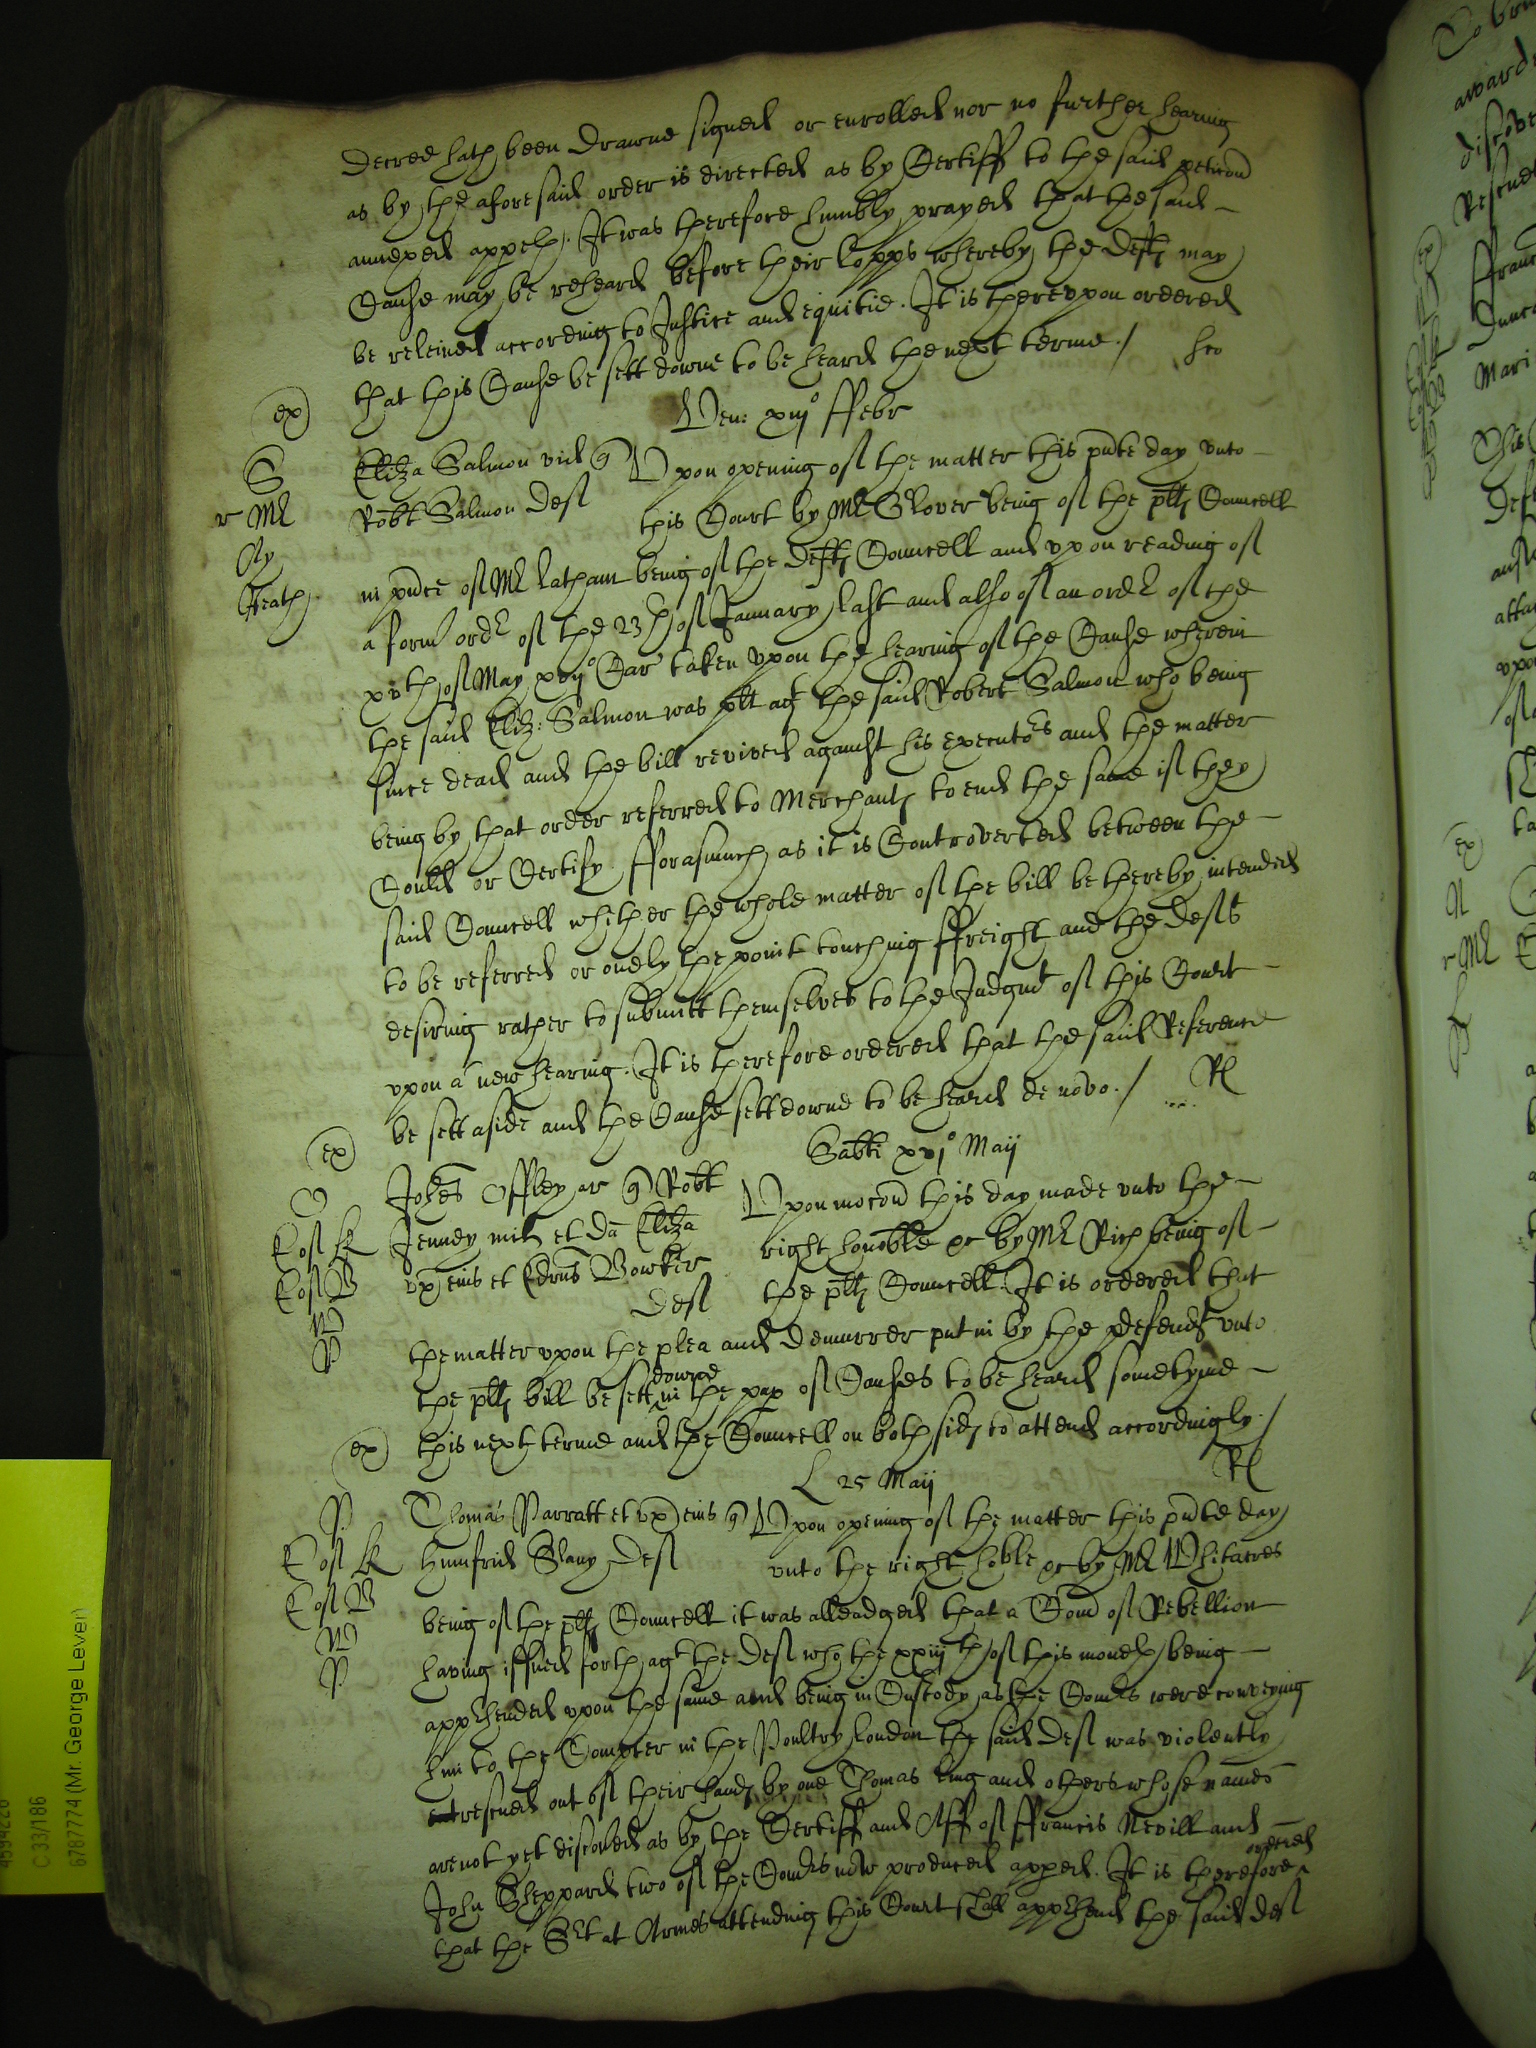 decree hath been drawne signed or enrolled nor no further hearing
as by the aforesaid order is directed as by Certiff to the said peticon
annexed appeth. It was therefore humbly prayed that the said
Cause may be reheard before their Lopps whereby the Deftς may
be releived according to Justice and equitie. It is therevpon ordered
that this Cause be sett downe to be heard the next terme./
Ven: xiij° ffebr
ex
S
r Mr
Ay
Heath
Eliza Salmon vid q Vpon opening of the matter this pnte day vnto
Robt Salmon Deft this Court by Mr Glover being of the pltς Councell
in pnce of Mr Latham being of the Deftς Councell and vpon reading of
a form ordr of the 23th of January last and also of an ordr of the
xvth of May xvij° Car taken vpon the hearing of the Cause wherein
the said Eliz: Salmon was plt agt the said Robert Salmon who being
since dead and the bill revived against his executors and the matter
being by that order referred to Merchantς to end the same if they
Could or Certify. fforasmuch as it is Controverted between the
said Councell whither the whole matter of the bill be thereby intended
to be referred or onely the point touching ffreight and the Defts
desiring rather to submitt themselves to the Judgmt of this Court
vpon a new hearing. It is therefore ordered that the said Reference
be sett aside and the Cause sett downe to be heard de novo./ Rl
Sabti xvj° Maij
ex
O
P
Johes Offley ar q Robt Vpon mocon this day made vnto the
Jenney mil et Da Eliza right honoble &c by Mr Rich being of
vx eius et Edrus Bowker the pltς Councell. It is ordered that
Deft
the matter vpon the plea and demurrer put in by the defendt vnto
the pltς bill be sett downe in the pap of Causes to be heard sometyme
this next terme and the Councell on both sidς to attend accordingly./
Rl
L 25 Maij
ex
P
P
Thomas Parratt et vx eius q Vpon opening of the matter this pnte day
Humfrid Slany Deft vnto the right hoble &c by Mr Whitacres
being of the pltς Councell it was alleadged that a Com of Rebellion
having issued forth agt the Deft who the xxiijth of this moneth being
apprhended vpon the same and being in Custody as the Comrs were conveying
him to the Compter in the Poultry London the said Deft was violently
rescued out of their handς by one Thomas King and others whose names
are not yet discoued as by the Certiff and Aff of ffrancis Nevill and
John Sheppard two of the Comrs now produced apped. It is therefore ordered
that the Srt at Armes attending this Court shall apprhend the said deft
C 33/186
6787774 (Mr. George Lever)